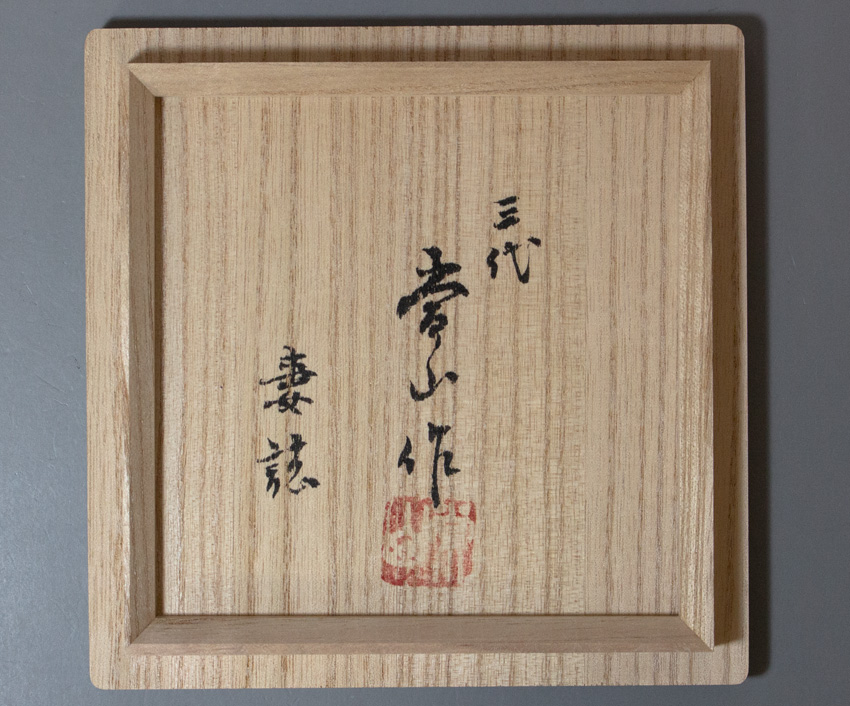 三代
常山作
妻誌